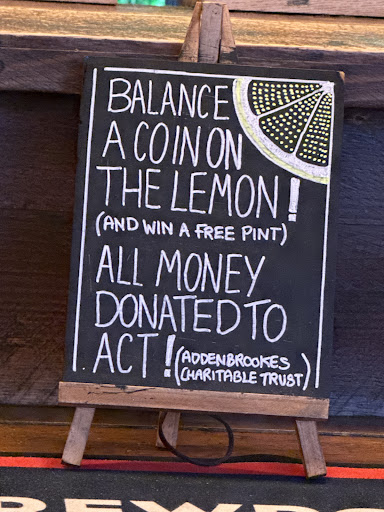 BALANCE
A COIN ON
THE LEMON!
(AND WIN A FREE PINT)
ALL MONEY
DONATED TO
ACT! (ADDENBROOKES
CHARITABLE TRUST)